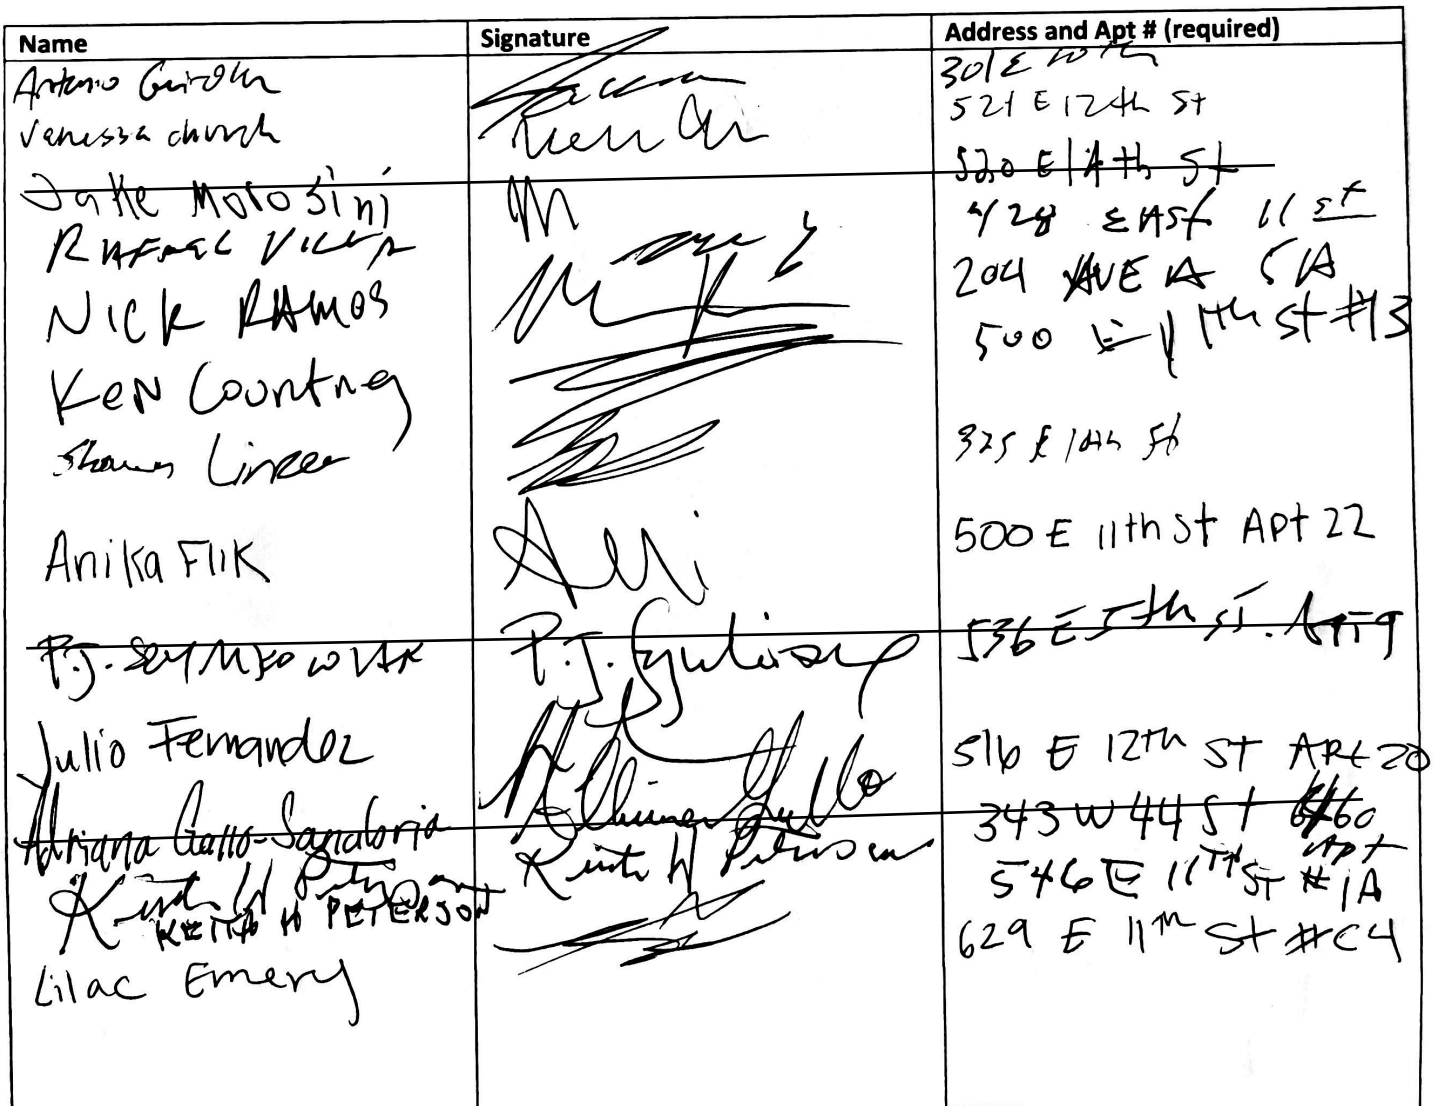 Name Signature Address and Apt # (required)
Antonio 301 E 10th
Vanessa church 521 E 12th St
Jake Morosini 520 E 14th St
RAFAEL 428 EAST 11 st
NICK RAMOS 204 AVE A 5A
Ken Courtney 500 E 11th St #13
325 E 10th St
Anika Flik 500 E 11th St Apt 22
P.J. P.J. 536 E 5th ST. Apt 9
Julio Fernandez 516 E 12th ST APt 20
Adriana Gallo-Sanabria 343 W 44 St
Keith W Peterson Keith W Peterson 546 E 11TH ST Apt #1A
KEITH W PETERSON
Lilac Emery 629 E 11th St #C4